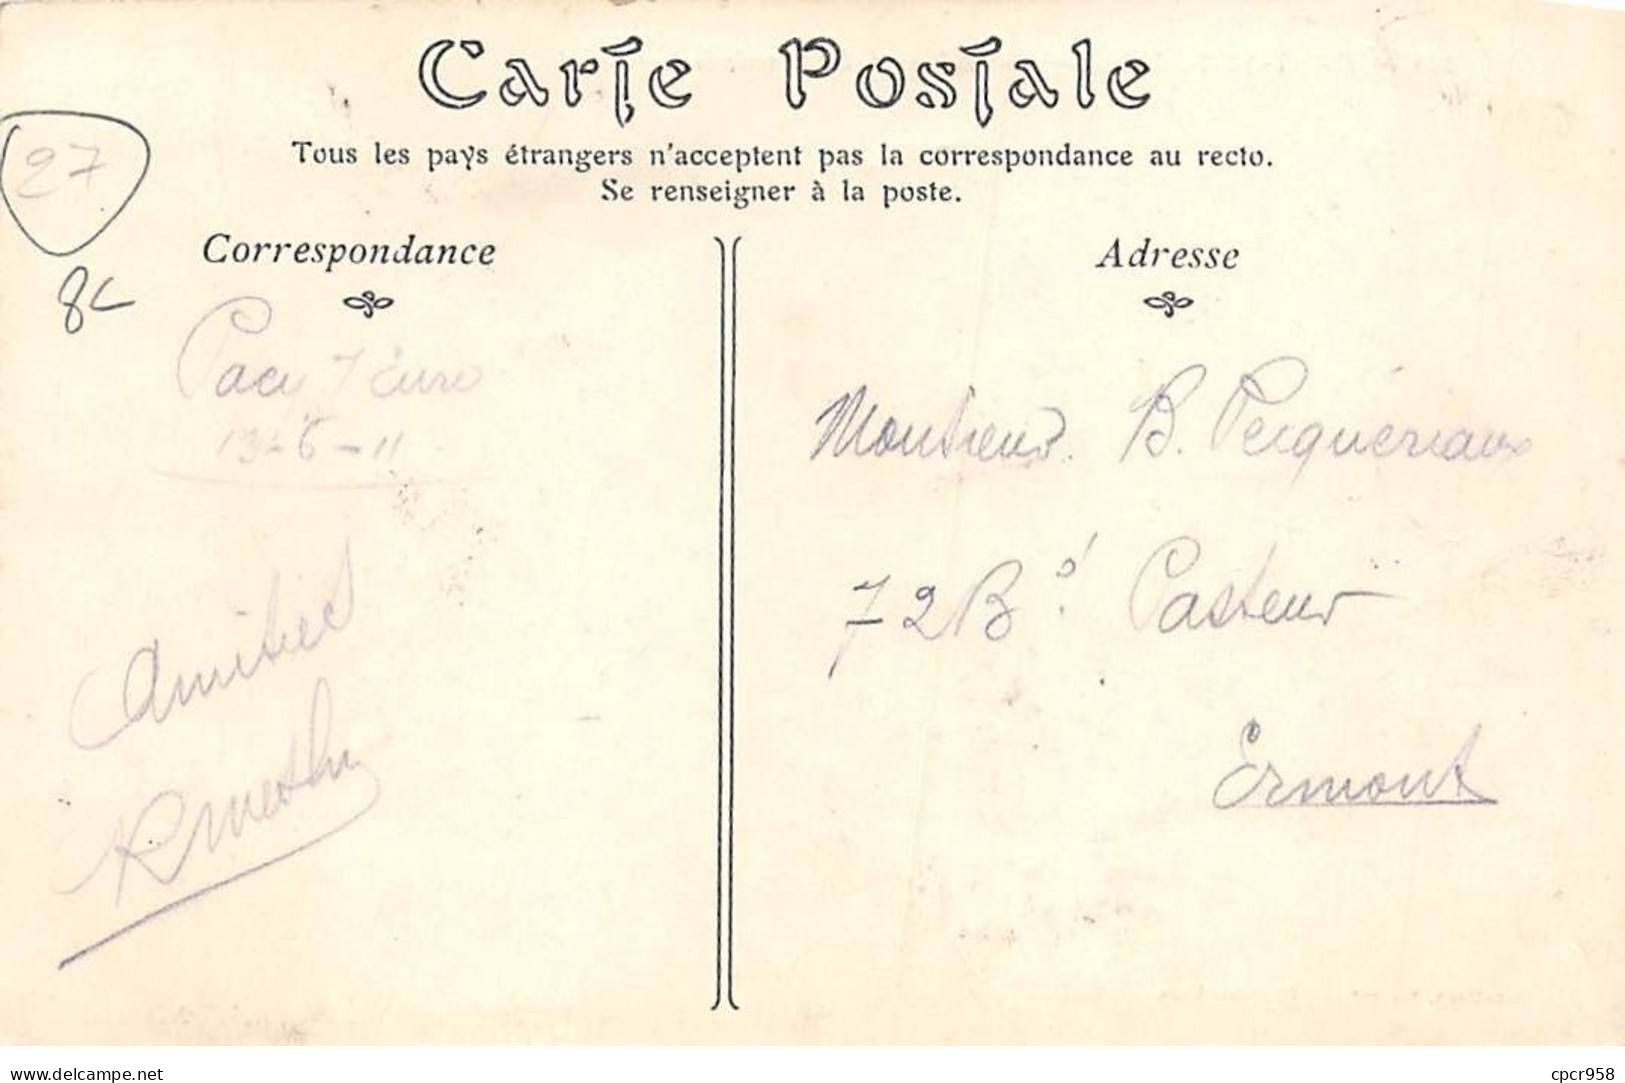 Carte Postale
Tous les pays étrangers n'acceptent pas la correspondance au recto.
Se renseigner à la poste.
27
Correspondance
Adresse
8c
Pacy s/ Eure
13-6-11
Monsieur B. Pecquériaux
72 Bd Pasteur
Amitiés
Ermont
www.delcampe.net
cpcr958